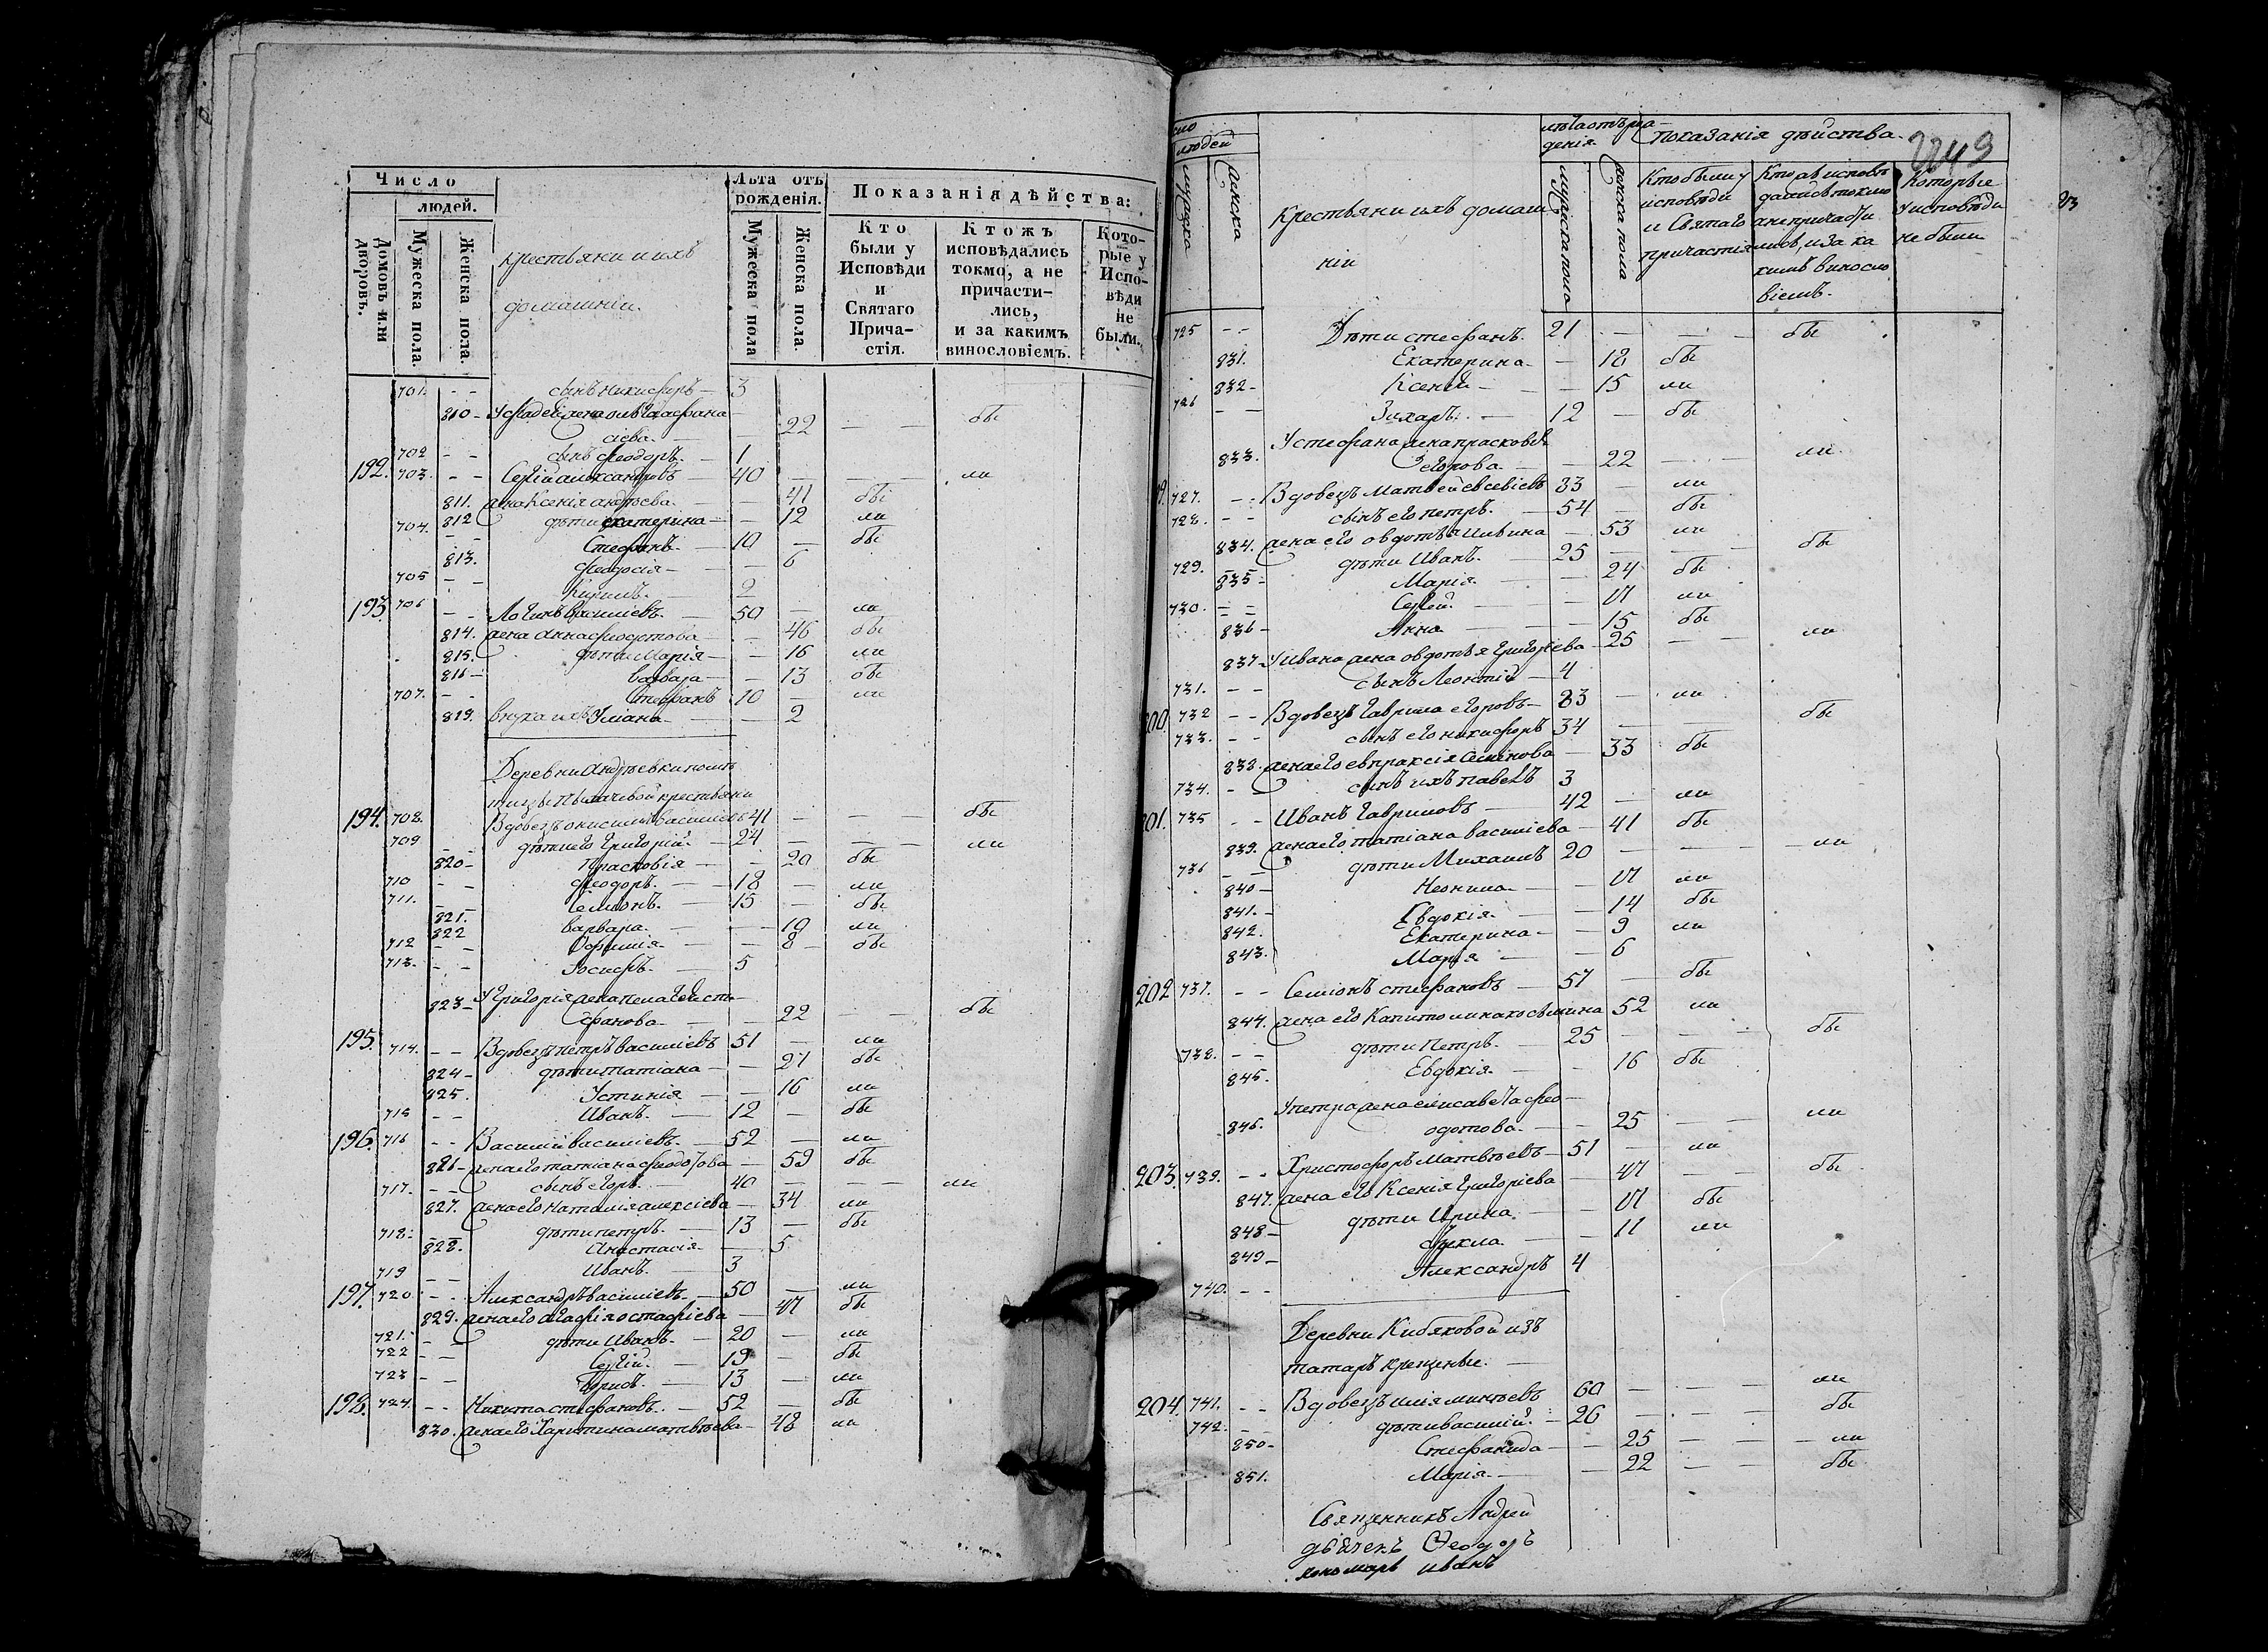 Число
людей.
Домовъ или дворовъ.
Мужеска пола.
Женска пола.
крестьяни и ихъ
домашнии.
Лѣта отъ рожденія.
Мужеска пола
Женска пола.
Показанія дѣйства:
Кто были у Исповѣди и Святаго Причастія.
Ктожъ исповѣдались токмо, а не причастились, и за какимъ винословіемъ.
Которые у Исповѣди не были.
701. - - сынъ никифоръ - 3
810 -
сіева. - 22 - - бы
702 - - сынъ феодоръ. - 1
192. 703. - - Сергій александровъ 40 - - - ли
811. жена Ксенія андреева. - 41 бы
812 дѣти екатерина - - 12 ли
704. - - Стефанъ. - 10 - бы
813. феодосія - - - 6
705 - - Кирилъ. - 2
193. 706 - - Логинъ василіевъ. - 50 - ли
814. жена анна федотова - - 46 бы
815. дѣти Марія - - 16 ли
816 - варвара - - 13 бы
707. - - Стефанъ 10 - ли
819. внука ихъ Уліана - - 2
Деревни Андреевки помѣ
крестьяни
194. 708. Вдовецъ василіевъ 41 - - - бы
709 - - дѣти его Григорій. - 24 - - - ли
820 - Прасковія - - 20 бы
710 - - феодоръ. - 18 - ли
711. - - Семіонъ. - 15 - бы
821. варвара. - - 19 ли
822
712 - - - 8 - бы
713. - - Іосифъ. - 5
823 - У Григорія жена пелагея сте
фанова - 22 - - бы
195. 714. - - Вдовецъ петръ василіевъ 51 - ли
824 - дѣти татіана - - 21 бы
825. Устинія - - 16 ли
715 - - Иванъ. - 12 - бы
196. 716 - - Василій василіевъ. - 52 - ли
826 - жена его татіана феодотова - 59 бы
717. - - сынъ егоръ. - 40 - - - ли
827. жена его наталія алексіева - 34 ли
718. дѣти петръ. - 13 - бы
828. Анастасія - 5
719 - - Иванъ. - 3
197. 720 - - Александръ василіевъ. - 50 - ли
829. жена его агафія остафіева - 47 бы
721. - дѣти Иванъ. - 20 - ли
722 - - Сергій. - 19 - бы
723 - - Борисъ. - 13 - ли
198. 724. - - Никита стефановъ. - 52 - бы
830. жена его Харитина матвѣева - 48 ли
сло
людей
мужеска
женска
крестьяни ихъ домаш
нии
лѣта отъ рож-
денія.
мужеска пола
женска пола
Показанія дѣйства.
2249
Кто были у исповѣди и Святаго причастія
Кто
Которые у исповѣди не были
725 - - Дѣти стефанъ. 21 - - - бы
831. Екатерина. - - 18 бы
832 - Ксенія - - 15 ли
726 - - Захаръ. - 12 - бы
833. У стефана жена прасковія
егорова. - - 22 - - ли.
727. - - Вдовецъ Матвей евсевіевъ 33 - ли
728. - - сынъ его петръ. - 54 - бы
834. жена его овдотья - 53 ли
729. дѣти Иванъ. - 25 - - - бы
835 - Марія. - - 24 бы
730. - - Сергей. - - 17 ли
836 - Анна - - 15 бы
837 - У ивана жена овдотья Григоріева - 25 - - ли
731. - - сынъ Леонтій - 4
200. 732 - - Вдовецъ гаврила егоровъ - 83 - ли
733. - - сынъ его никифоръ 34 - - бы
838. жена его евпраксія Семенова - 33 бы
734. - сынъ ихъ павелъ 3
201. 735 - - Иванъ гавриловъ - 42 - ли
839. жена его татіана василіева - 41 бы
736 - - дѣти Михаилъ 20 - - - ли
840 - Неонила - - 17 ли
841. - Евдокія. - - 14 бы
842. Екатерина - - 9 ли
843. Марія - - 6
202 737. - - Семіонъ стефановъ - 57 - бы
844. жена его Капитолина косьмина 52 ли
738. - - дѣти Петръ. - 25 - - бы
845. Евдокія. - - 16 бы
846. У петра жена елисавета фео -
одотова. - - 25 - - ли
203. 739. - - Христофоръ Матвѣевъ - 51 - ли
847. жена его Ксенія Григоріева - 47 - - бы
848 - дѣти Ирина. - - 17 бы
849 - фекла. - - 11 ли
740. - - Александръ 4
Деревни Кибяковой изъ
татаръ крещеные. -
204. 741. - - Вдовецъ илія 60 - - - ли
742. - - дѣти василій. - 26 - - - бы
850 - Стефанида - - 25 - - - ли
851. Марія. - - 22 - - бы
Священникъ Андрей
дьячекъ Феодоръ
пономарь иванъ